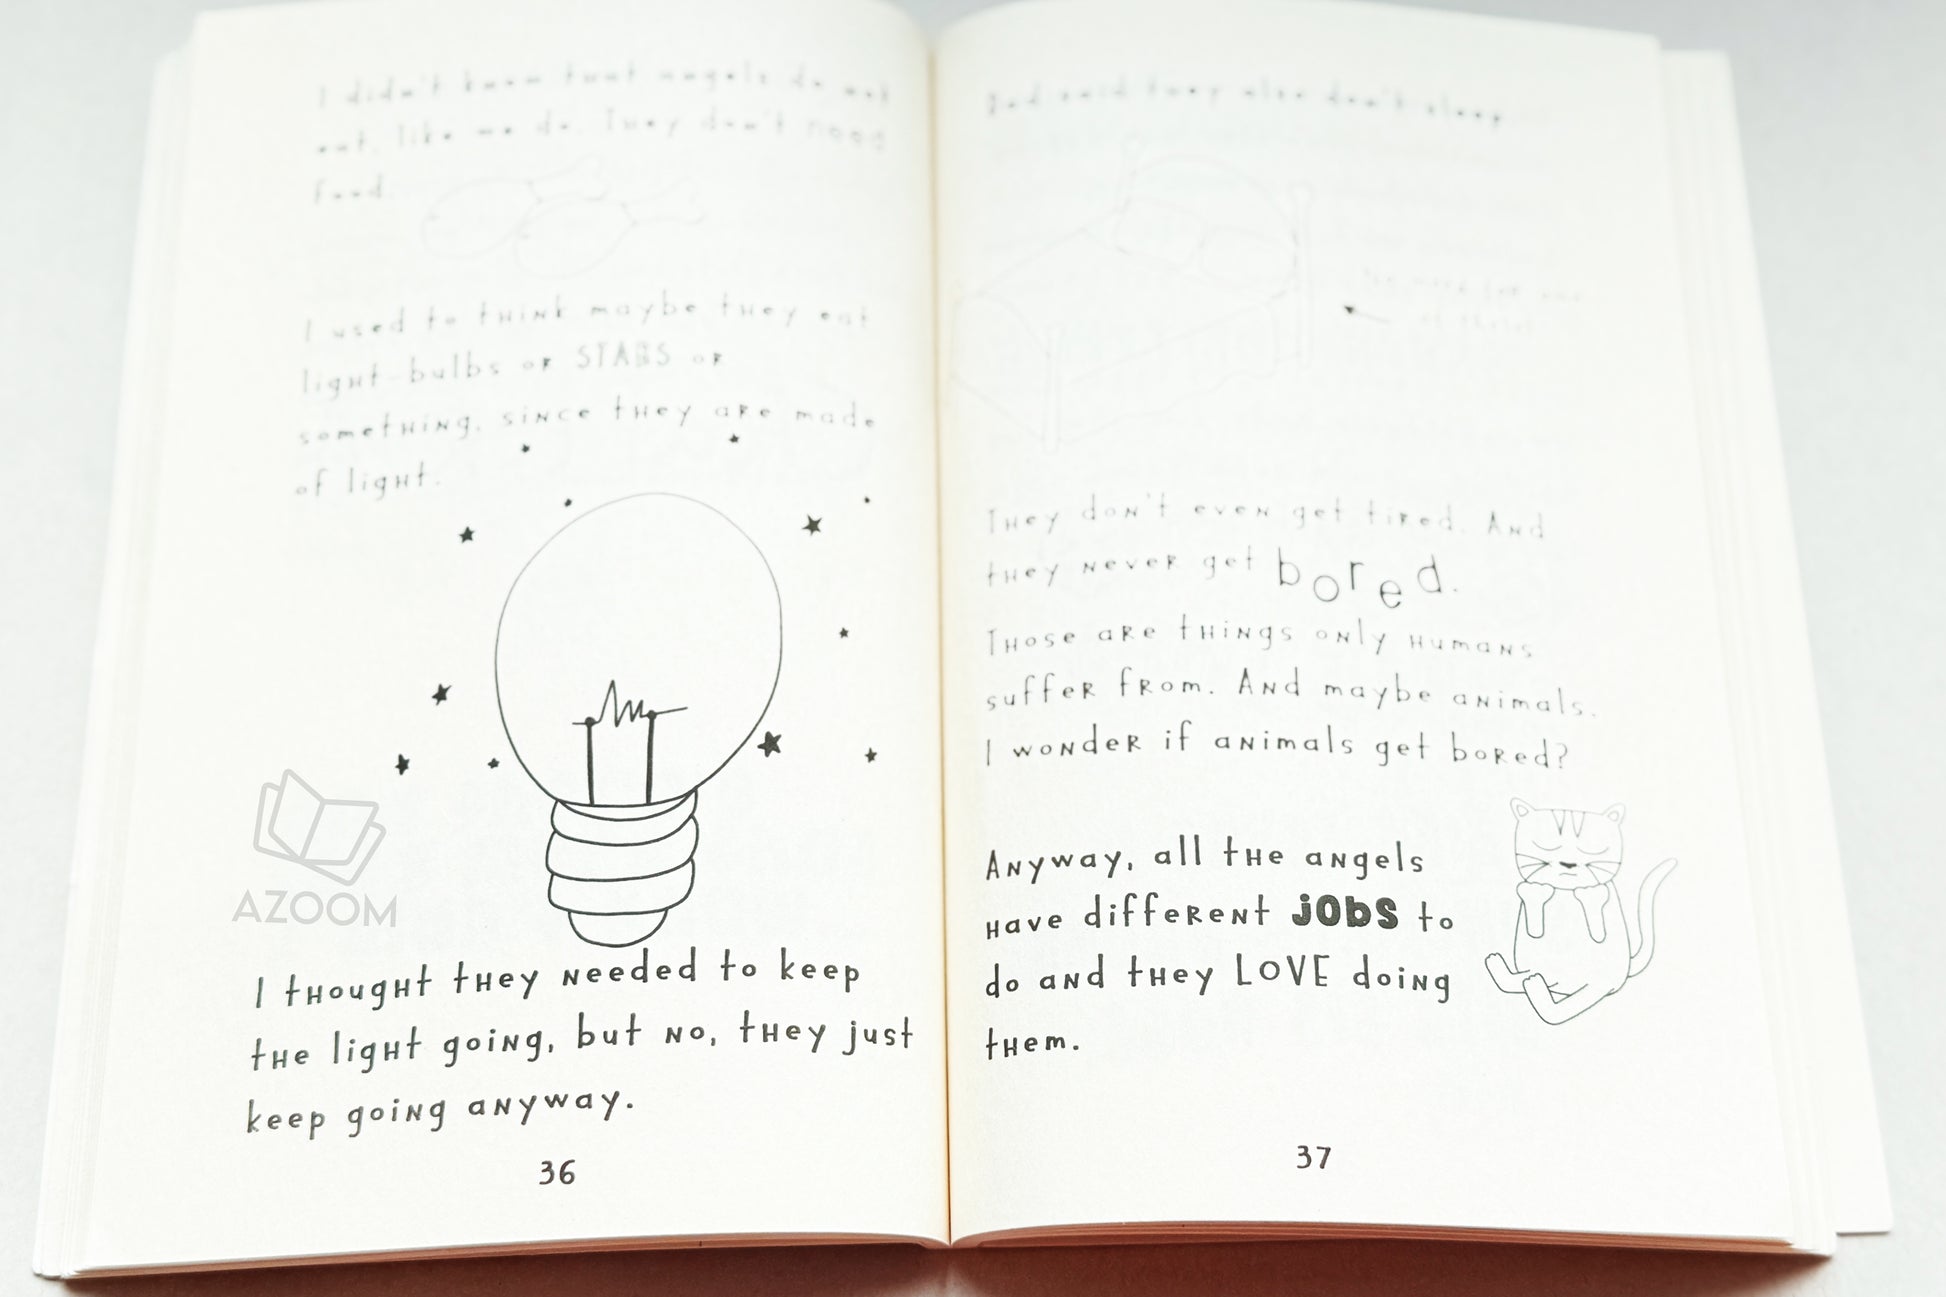 I didn't know that angels do not
eat, like we do. They don't need
food.
I used to think maybe they eat
light-bulbs or STARS or
something, since they are made
of light.
AZOOM
I thought they needed to keep
the light going, but no, they just
keep going anyway.
36
Dad said they also don't sleep
No need for one
of these!
They don't even get tired. And
they never get bored.
Those are things only humans
suffer from. And maybe animals.
I wonder if animals get bored?
Anyway, all the angels
have different jobs to
do and they LOVE doing
them.
37